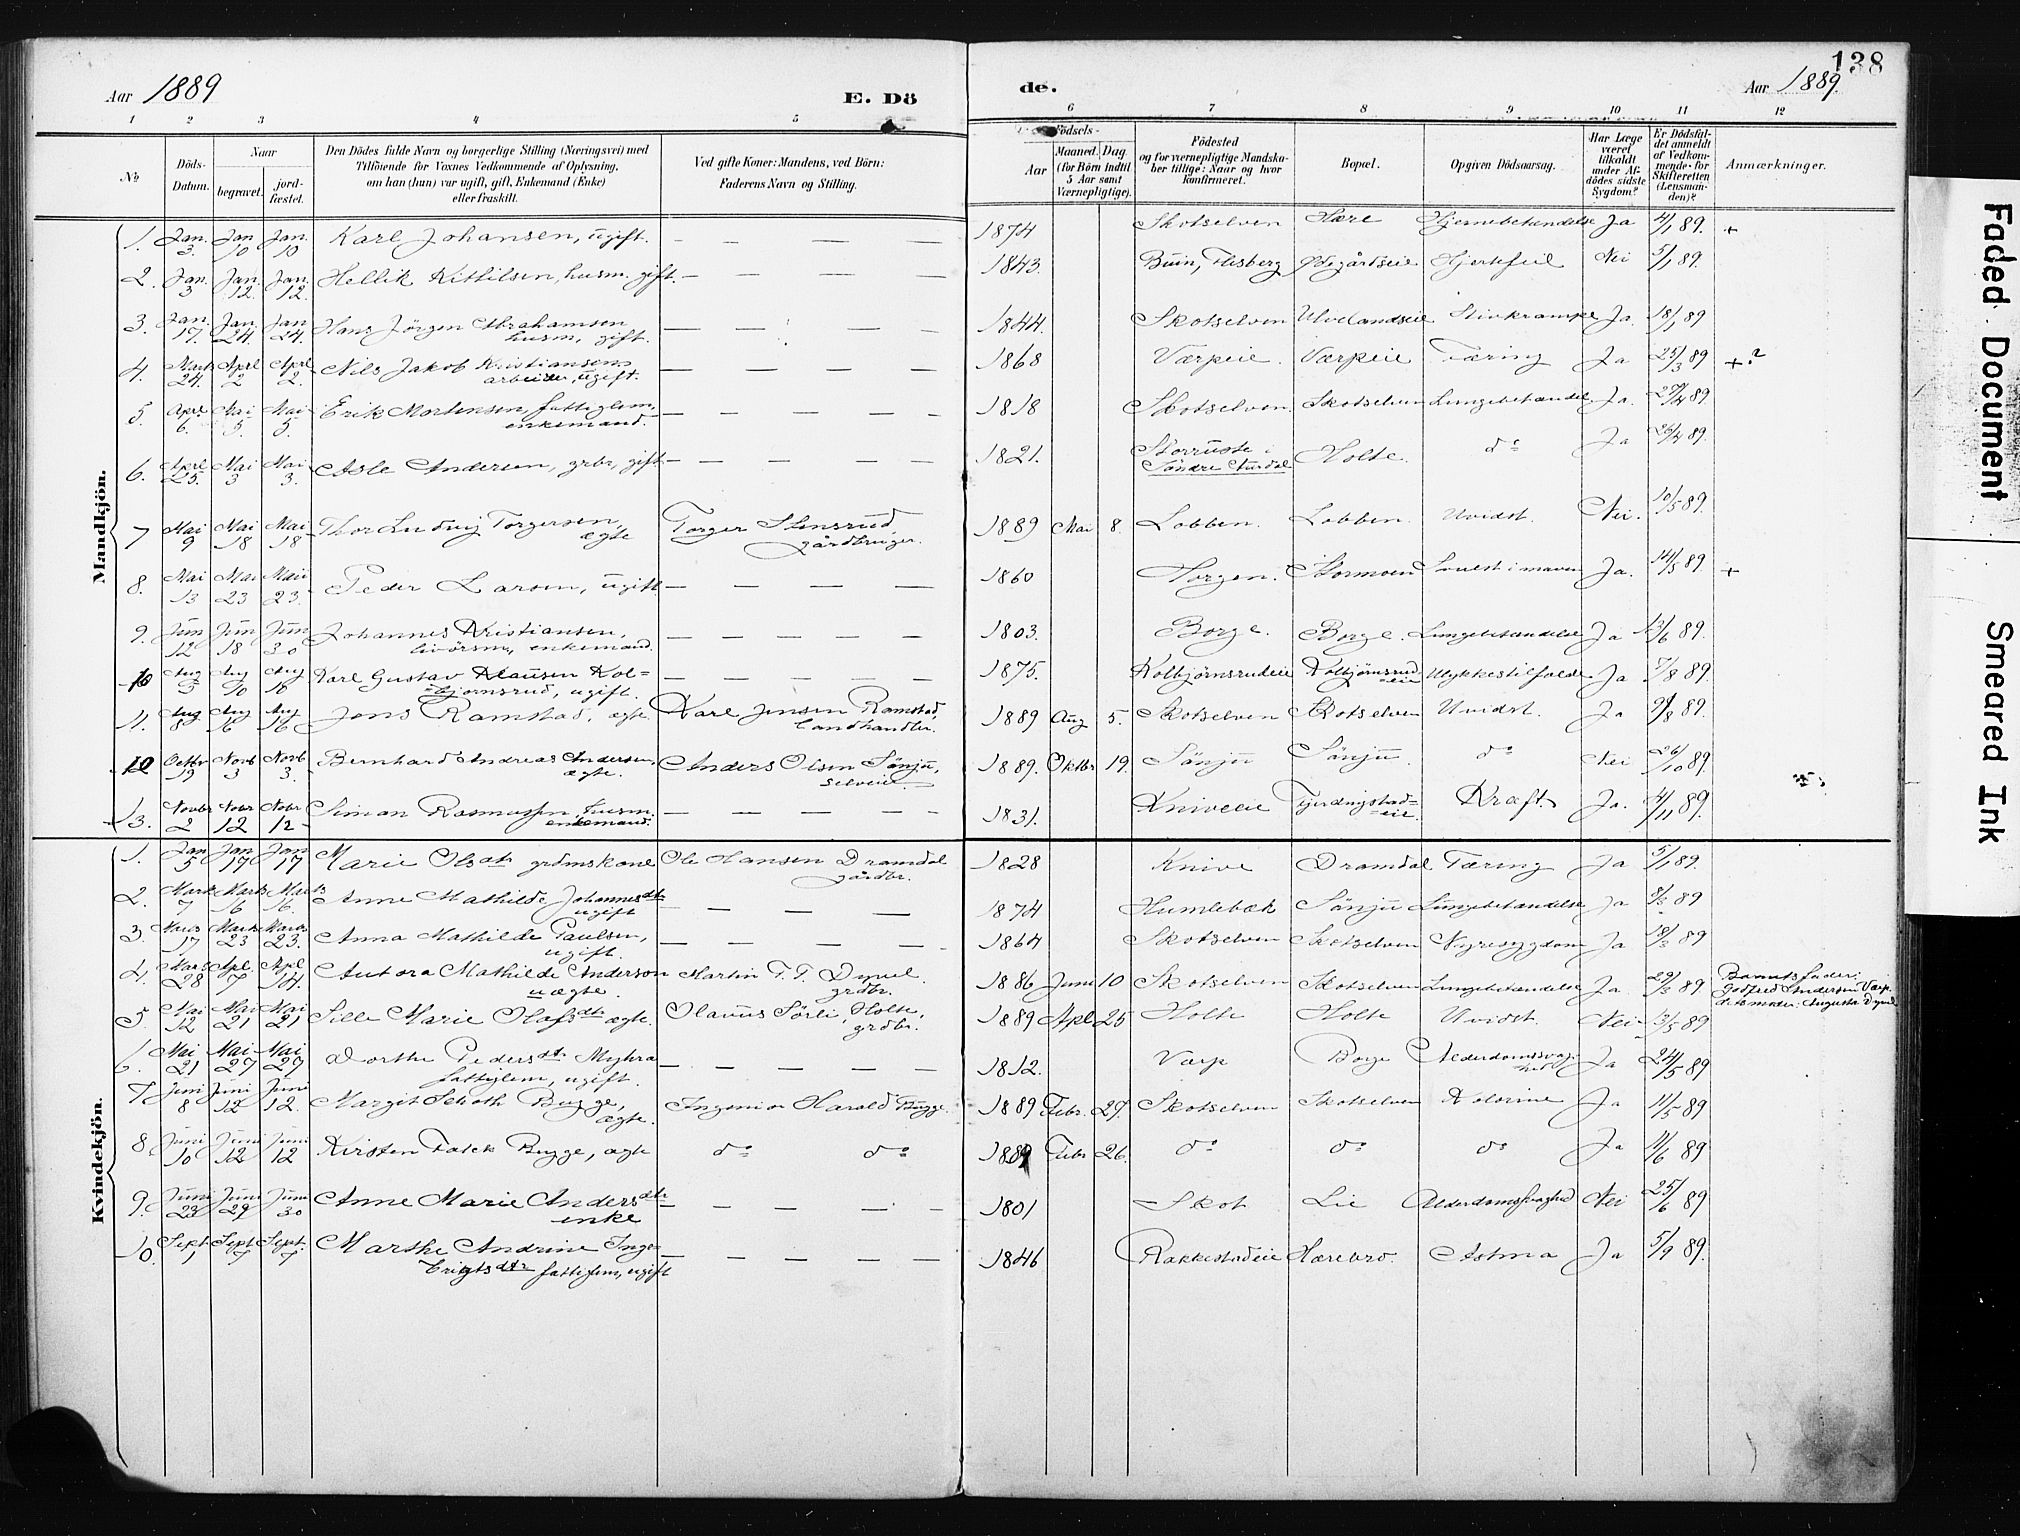 138
Aar 1889
E. Dö
de.
Aar 1889.
1 2 3 4 5 6 7 8 9 10 11 12
No
Döds-Datum.
Naar
begravet.
jord-fæstet.
Den Dödes fulde Navn og borgerlige Stilling (Næringsvei) med
Tilföiende for Voxnes Vedkommende af Oplysning,
om han (hun) var ugift, gift, Enkemand (Enke)
eller fraskilt.
Ved gifte Koner: Mandens, ved Börn:
Faderens Navn og Stilling.
Födsels-
Aar
Maaned. Dag
(for Börn indtil
5 Aar samt
Værnepligtige).
Födested
og for værnepligtige Mandska-
ber tillige: Naar og hvor
konfirmeret.
Bopæl.
Opgiven Dödsaarsag.
Har Læge
været
tilkaldt
under Af-
dödes sidste
Sygdom?
Er Dödsfal-
det anmeldt
af Vedkom-
mende for
Skifteretten
(Lensman-
den)?
Anmærkninger.
Mandkjön.
1. Jan. 3. Jan 10 Jan. 10 Karl Johansen, ugift. — — — — 1874 Skotselven Hære Hjernebetændelse Ja 4/1 89. +
2. Jan. 3 Jan. 12. Jan. 12. Hellik Kittilsen, husm. gift. — — — — 1843. Buin, Flesberg Ødegårdseie Hjertefeil Nei 5/1 89.
3. Jan. 17. Jan. 24. Jan 24. Hans Jörgen Abrahamsen
husm, gift. — — — — 1844. Skotselven Ulvelandseie Stivkrampe Ja. 18/1 89
4. Marts 24. Aprl 2 Aprl 2. Nils Jakob Kristiansen
arbeider, ugift. — — — — 1868 Værpeie. Værpeie Tæring Ja 25/3 89 +?
5. Aprl 6. Mai 5. Mai 5. Erik Mortensen, fattiglem,
enkemand. — — — — 1818 Skotselven. Skotselven Lungebetændel. Ja. 27/4 89.
6. Aprl 25. Mai 3 Mai 3. Asle Andersen, grbr, gift — — — — 1821. Storruste i
Söndre Aurdal Holte. do Ja 26/4 89.
7 Mai 9 Mai 18 Mai 18 Thor Ludvig Torgersen,
ægte Torger Stensrud
gårdbruger. 1889 Mai 8. Lobben. Lobben. Uvidst. Nei. 10/5 89.
8. Mai 13 Mai 23 Mai 23. Peder Larsen, ugift — — — — 1860 Horgen. Stormoen Ja. 14/5 89 +
9. Jun 12 Jun 18 Jun 30 Johannes Kristiansen,
livörsm, enkemand. — — — — 1803. Borge. Borge. Lungebetændelse Ja 13/6 89.
10 Aug 3 Aug 10 Aug 18 Karl Gustav Klausen Kol-
bjørnsrud, ugift. — — — — 1875. Kolbjørnsrudeie Kolbjørnsrud-
eie Ulykkestilfælde Ja 7/8 89.
11. Aug 8 Aug 16 Aug 16 Jens Ramstad, ægte. Karl Jensen Ramstad,
Landhandler. 1889 Aug 5. Skotselven Skotselven Uvidst. Ja 9/8 89.
12 Octbr 19 Novb 3 Novb 3. Bernhard Andreas Andersen,
ægte. Anders Olsen Sönju,
selveier 1889. Oktbr 19. Sönju Sönju. do Nei 26/10 89.
13. Novbr 2 Nobr 12 Nobr 12 Simon Rasmussen, husm.
enkemand. — — — — 1831. Kniveeie Fjerdingstad-
eie. Kræft Ja. 4/11 89.
Kvindekjön.
1. Jan 5 Jan 17 Jan 17 Marie Olsdtr grdmskone Ole Hansen Dramdal
gårdbr. 1828 Knive Dramdal Tæring Ja 5/1 89.
2. Marts 7 Marts 16 Marts 16. Anne Mathilde Johannesdtr
ugift — — — — 1874 Humlebæk Sönju Lungebetændelse Ja 8/3 89
3. Mars 17 Marts 23 Marts 23. Anna Mathilde Paulsen,
ugift. — — — — 1864 Skotselven Skotselven Nyresygdom Ja 18/3 89
4. Mars 28 Apl. 7 Apl 14. Aurora Mathilde Anderson
uægte. Martin T. T. Dyvel
grdbr. 1886 Juni 10 Skotselven Skotselven Lungebetændelse Ja. 29/3 89 Barnets fader:
Godfred Andersen Værp.
Augusta Dyvel
5. Mai 12 Mai 21 Mai 21 Sille Marie Olafsdtr ægte. Olavus Sörli, Holte,
grdbr. 1889 Apl 25 Holte Holte Uvidst. Nei 13/5 89
6. Mai 21 Mai 27 Mai 27 Dorthe Pedersdtr Myhra
fattiglem, ugift. — — — — 1812. Værp Borge Alderdomssvag-
hed Ja 24/5 89
7 Juni 8 Juni 12 Juni 12. Margit Schøth Bugge,
ægte. Ingeniør Harald Bugge. 1889 Febr. 27. Skotselven Skotselven Kolerine Ja 11/5 89
8 Juni 10 Juni 12 Juni 12 Kirsten Falck Bugge, ægte do do 1889 Febr 26. do do do Ja 11/6 89
9. Juni 23 Juni 29 Juni 30 Anne Marie Andersdtr
enke — — — — 1801 Skot Lie Alderdomssvaghed Nei 25/6 89
10. Sept 1 Sept 7 Sept. 7 Marthe Andrine Inge-
brigtsdtr fattiglem, ugift — — — — 1846 Rakkestadeie Hærebro. Astma Ja 5/9 89.
Faded Document
Smeared Ink